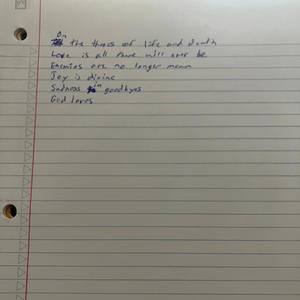 On the throes of life and death
Love is all there will ever be
Enemies are no longer mean
Joy is divine
Sadness in goodbyes
God loves